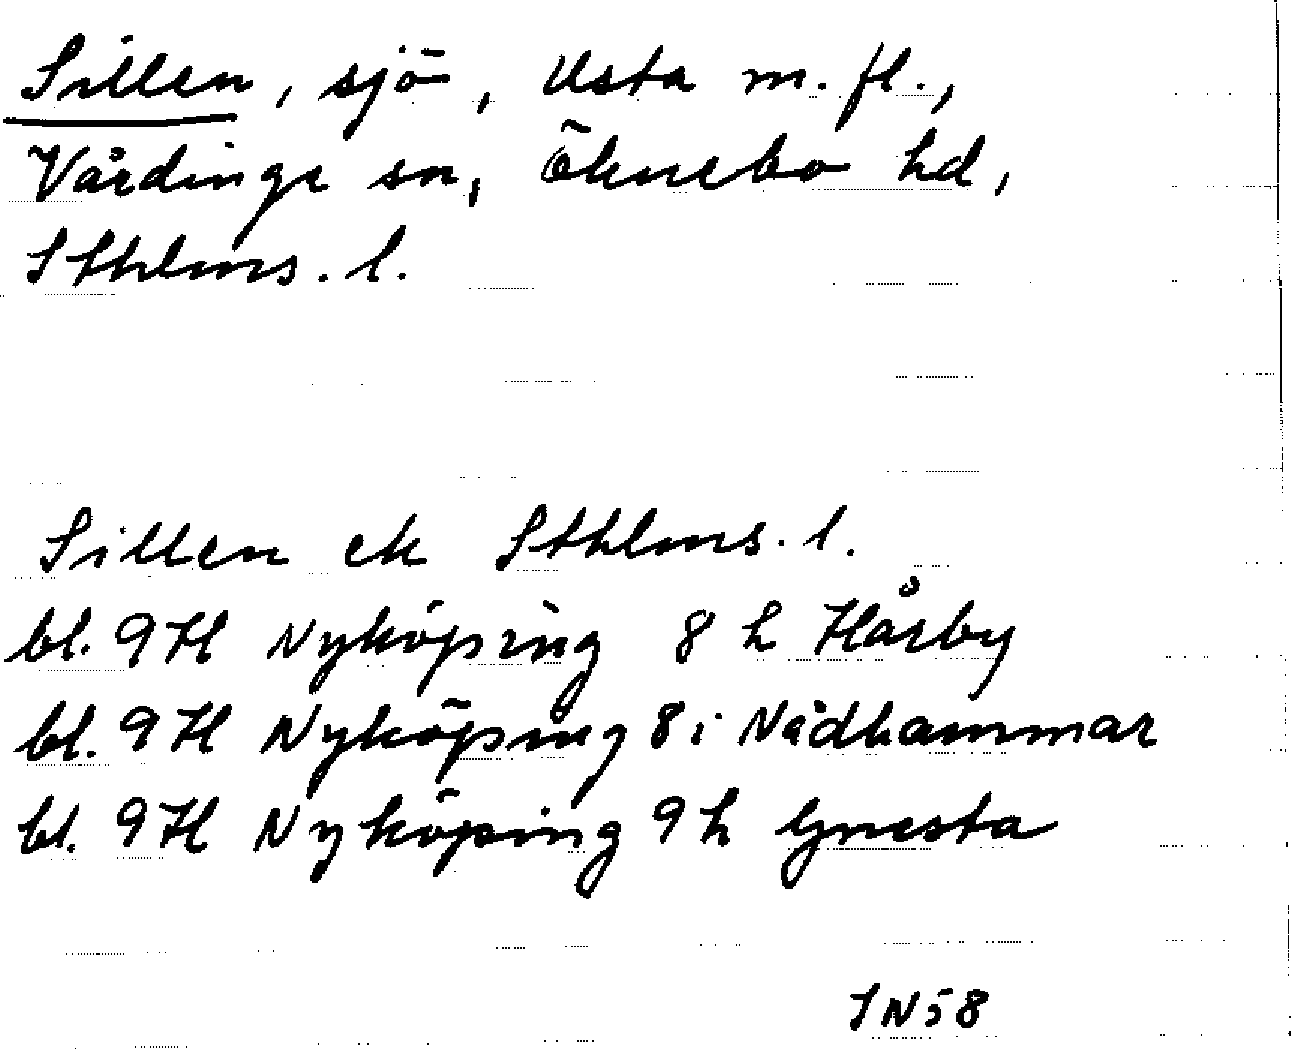 Sillen, sjö, Usta m.fl.,
Vårdinge sn, Öknebo hd,
Sthlms. l.
Sillen ek Sthlms. l.
bl. 9H Nyköping 8 h Hårby
bl. 9H Nyköping 8 i Nådhammar
bl. 9H Nyköping 9 h Gnesta
SN58